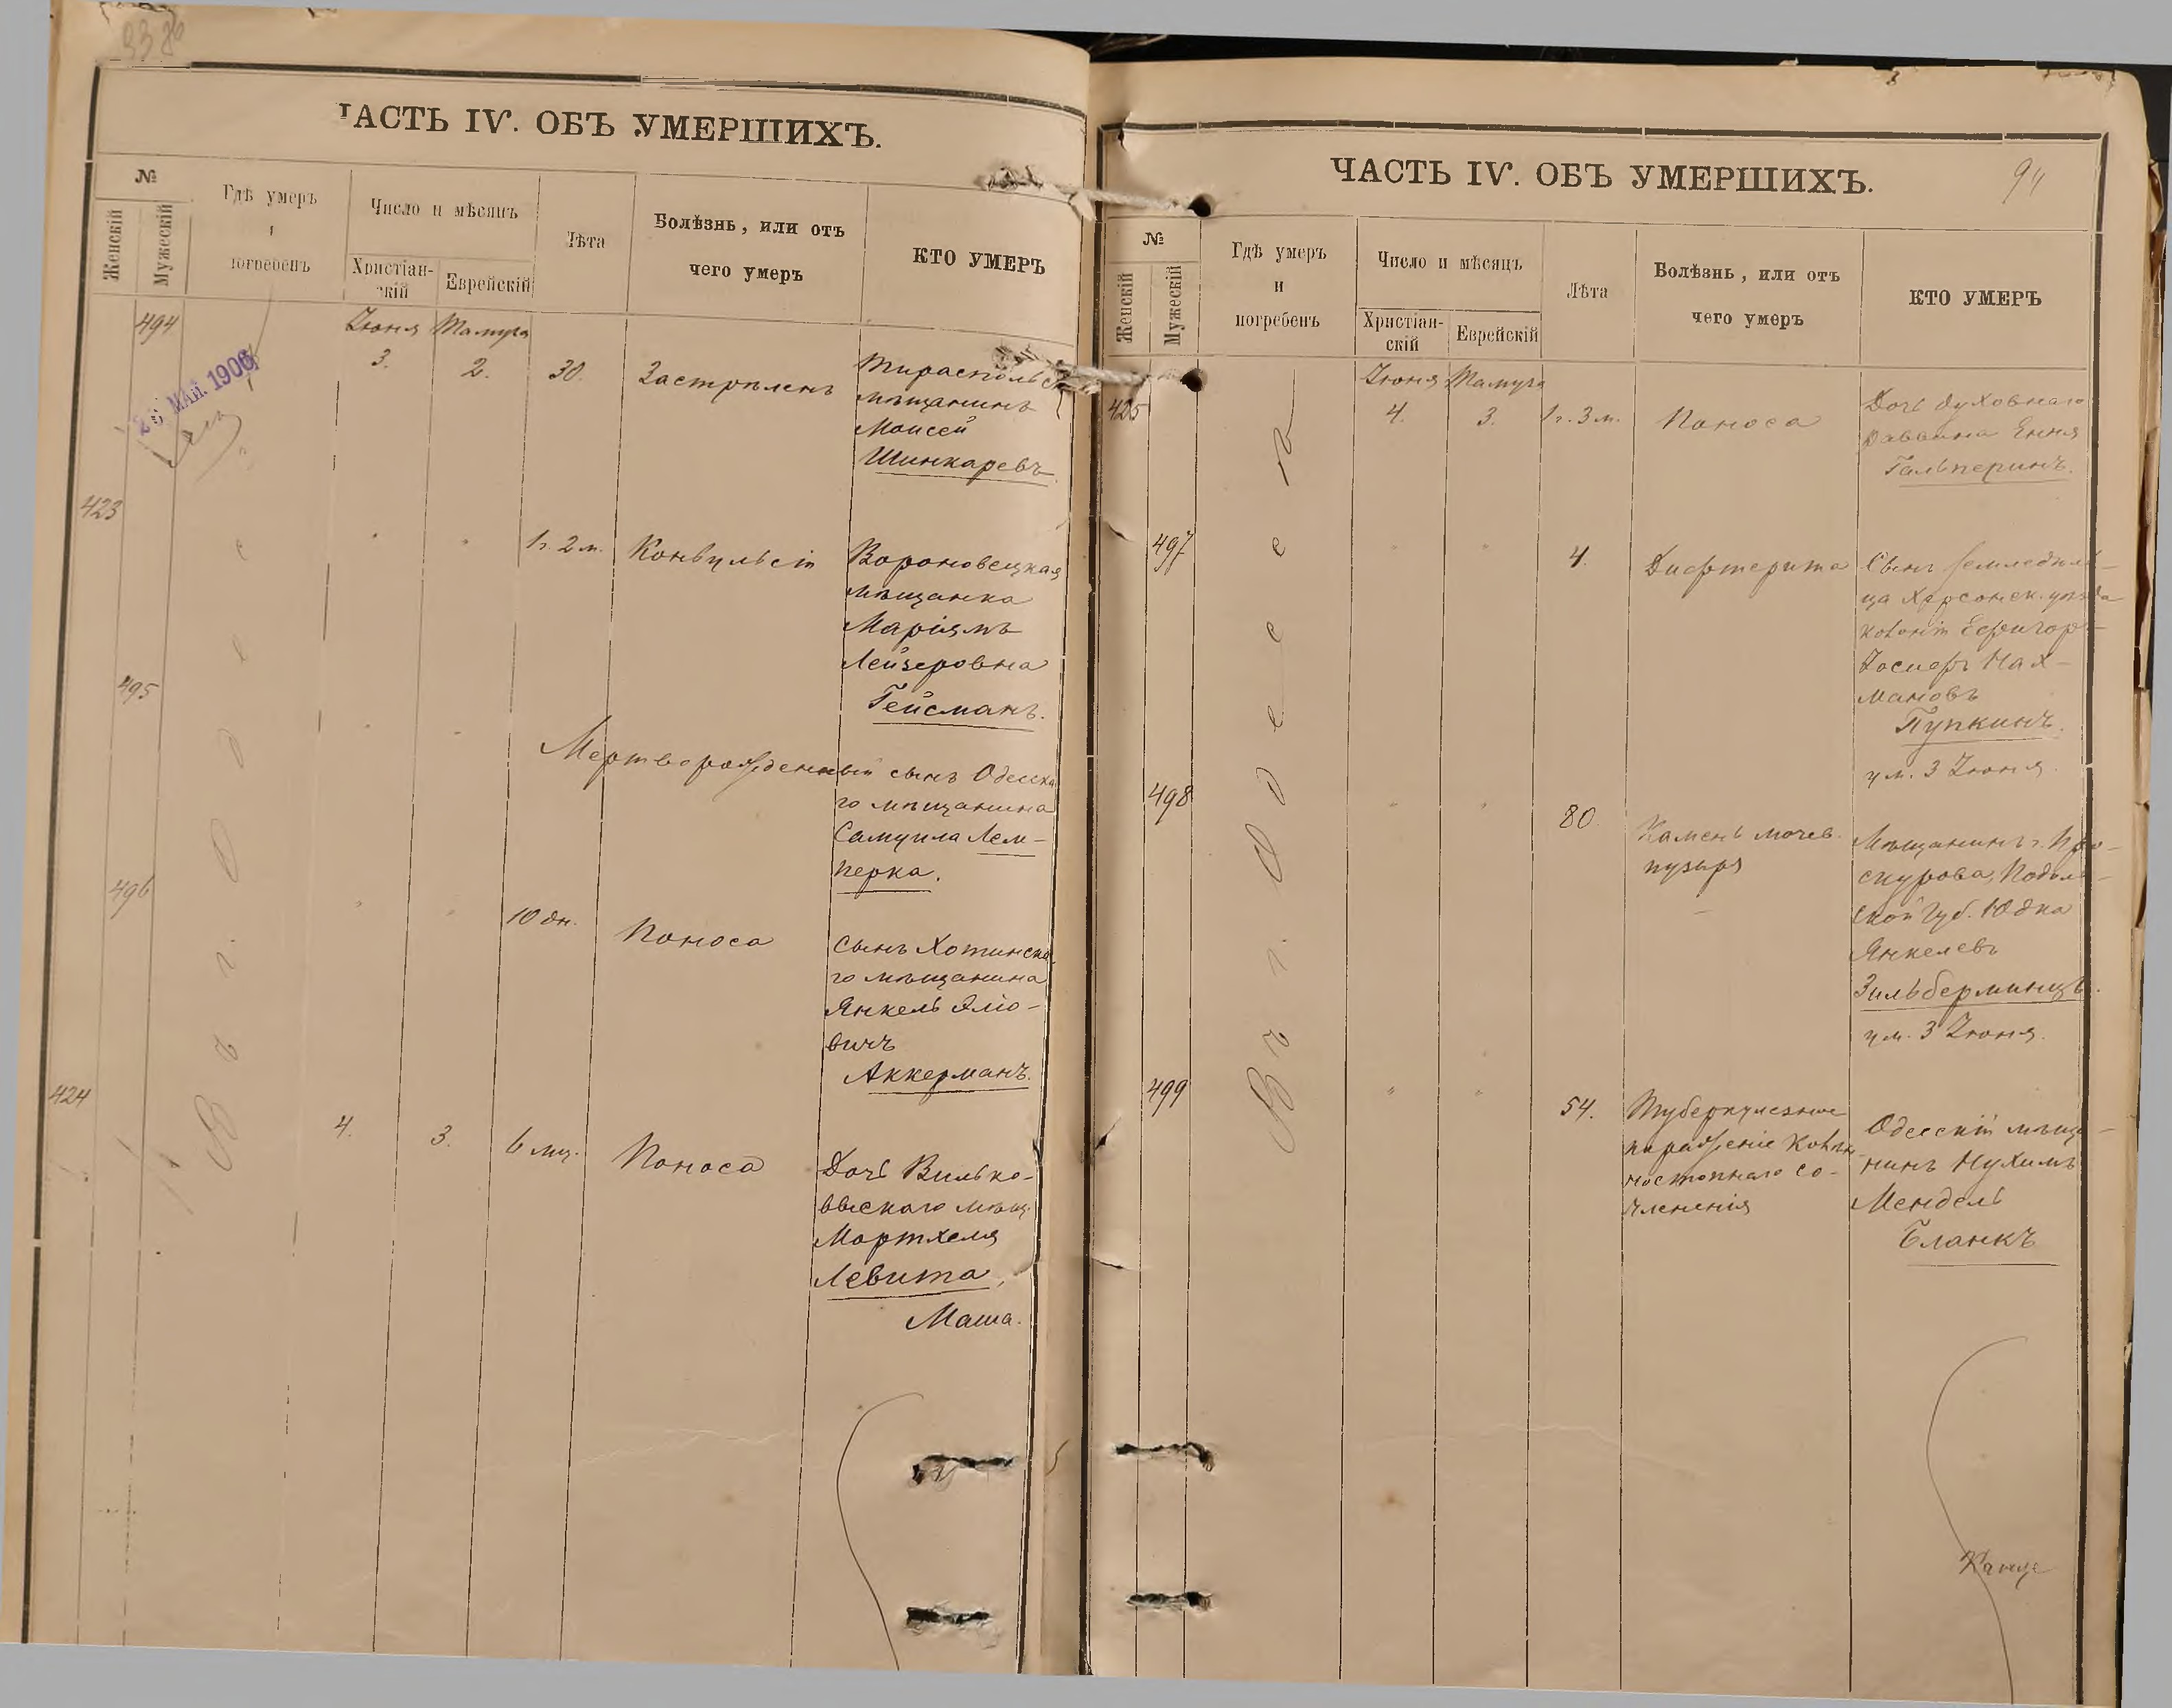 ЧАСТЬ IV. ОБЪ УМЕРШИХЪ.
№
Женскій
Мужескій
Гдѣ умеръ
и
погребенъ
Число и мѣсяцъ
Христіан-
скій
Еврейскій
Лѣта
Болѣзнь, или отъ
чего умеръ
КТО УМЕРЪ
Въ г. Одессѣ
494
Іюня Тамуза
3. 2. 30. Застрѣленъ
Тираспольск
мѣщанинъ
Моисей
Шинкаревъ
МАЙ. 1906
423
" " 1 г. 2 м. Конвульсіи
Вороновецкая
мѣщанка
Маріямъ
Лейзеровна
Гейсманъ.
495
" " Мертворожденный сынъ Одесска
го мѣщанина
Самуила Лем-
перка.
496
" " 10 дн. Поноса
Сынъ Хотинска
го мѣщанина
Янкель Эліо-
вичъ
Аккерманъ.
424
4. 3. 6 мц. Поноса
Дочь Вилько-
вскаго мѣщ.
Мортхеля
Левита,
Маша.
ЧАСТЬ IV. ОБЪ УМЕРШИХЪ.
94
№
Женскій
Мужескій
Гдѣ умеръ
и
погребенъ
Число и мѣсяцъ
Христіан-
скій
Еврейскій
Лѣта
Болѣзнь, или отъ
чего умеръ
КТО УМЕРЪ
Въ г. Одессѣ
425
Іюня Тамуза
4. 3. 1 г. 3 м. Поноса
Дочь духовнаго
раввина Ення
Гальперинъ.
497
" " 4. Дифтерита
Сынъ земледѣль-
ца Херсонск. уѣзда
колоніи Ефингар-
Іосифъ Нах-
мановъ
Пупкинъ.
ум. 3 Іюня.
498
" " 80. Камень мочев.
пузыря
Мѣщанинъ г. Про-
скурова, Подоль-
ской губ. Юдка
Янкелевъ
Зильберминцъ.
ум. 3 Іюня.
499
" " 54. Туберкулезное
пораженіе колѣн
ностопнаго со-
члененія
Одесскій мѣща-
нинъ Нухимъ
Мендель
Бланкъ